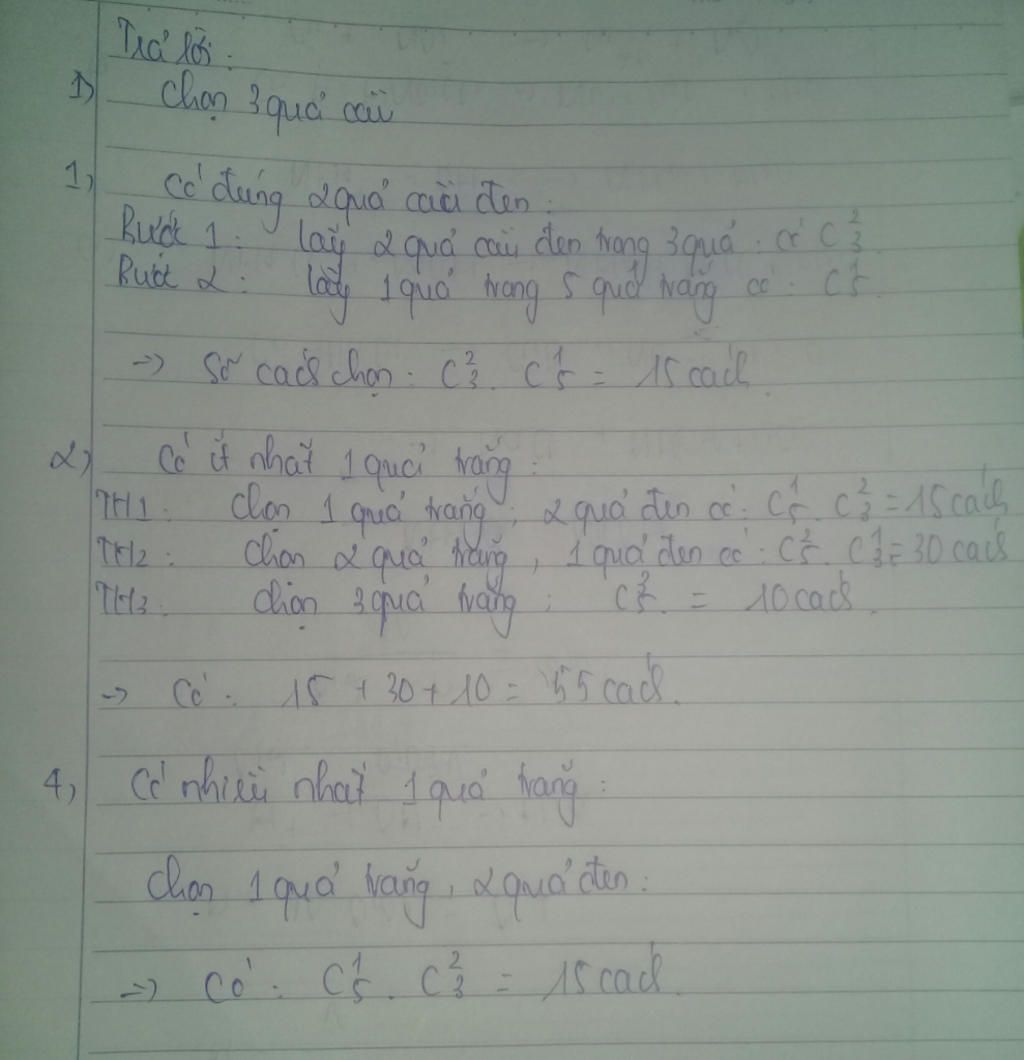 Trả lời:
1) Chọn 3 quả cầu
1, Có đúng 2 quả cầu đen:
Bước 1: lấy 2 quả cầu đen trong 3 quả: có C²₃
Bước 2: lấy 1 quả trong 5 quả trắng có: C¹₅.
=> Số cách chọn: C²₃. C¹₅ = 15 cách
2) Có ít nhất 1 quả trắng:
TH1: Chọn 1 quả trắng, 2 quả đen có: C¹₅. C²₃ = 15 cách
TH2: Chọn 2 quả trắng, 1 quả đen có: C²₅. C¹₃ = 30 cách
TH3: Chọn 3 quả trắng: C³₅. = 10 cách.
-> Có: 15 + 30 + 10 = 55 cách.
4, Có nhiều nhất 1 quả trắng:
Chọn 1 quả trắng, 2 quả đen:
=> Có: C¹₅. C²₃ = 15 cách.